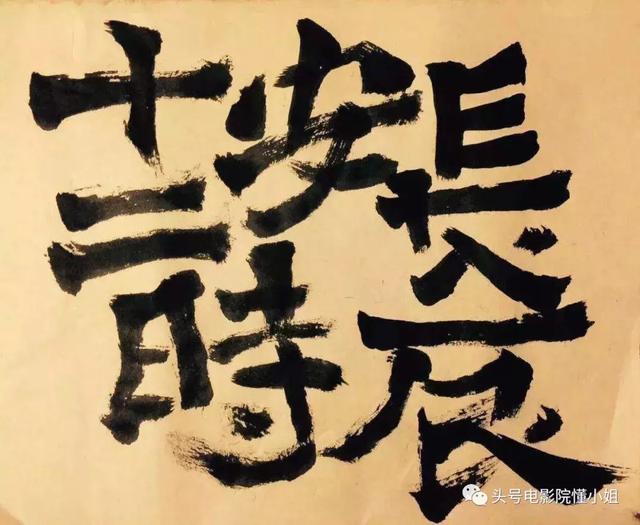 長安十
二時辰
头号电影院懂小姐